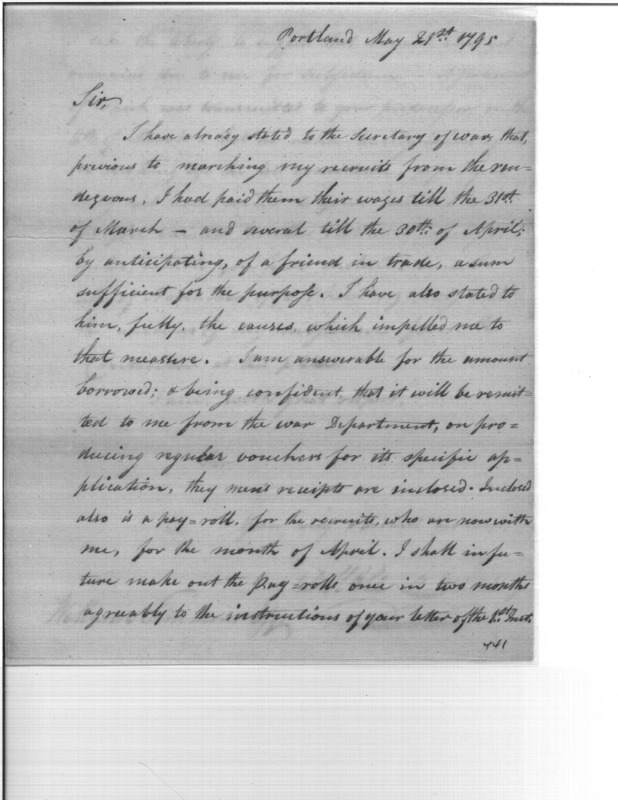 Portland May 21st 1795
Sir,
I have already stated to the Secretary of war, that,
previous to marching my recruits from the ren=
dezvous, I had paid them their wages till the 31st
of March — and several till the 30th of April;
by anticipating, of a friend in trade, a sum
sufficient for the purpose. I have also stated to
him, fully, the causes which impelled me to
that measure. I am answerable for the amount
borrowed; & being confident that it will be remit=
ted to me from the war Department, on pro=
ducing regular vouchers for its specific ap=
plication, they mens receipts are inclosed. Inclosed
also is a pay=roll, for the recruits, who are now with
me, for the month of April. I shall in fu=
ture make out the pay=rolls once in two months
agreeably to the instructions of your letter of the 1st Inst.
741